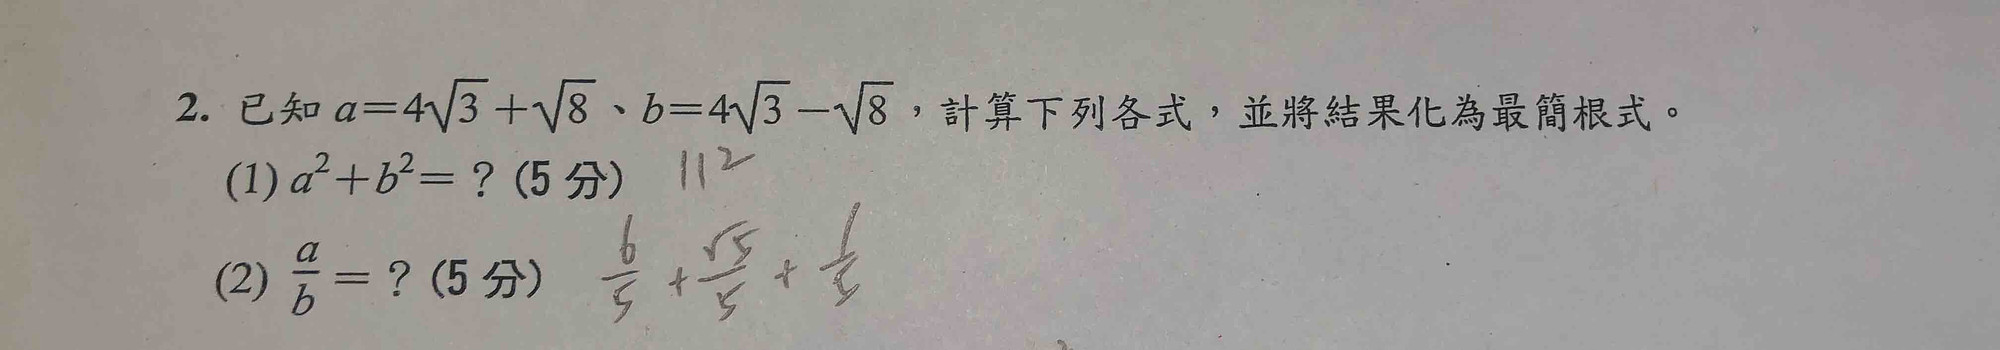 2. 已知 a=4√3+√8、b=4√3-√8,計算下列各式,並將結果化為最簡根式。
(1) a²+b²=？(5 分) 112
(2) a/b=？(5 分) 6/5 + √5/5 + 1/5